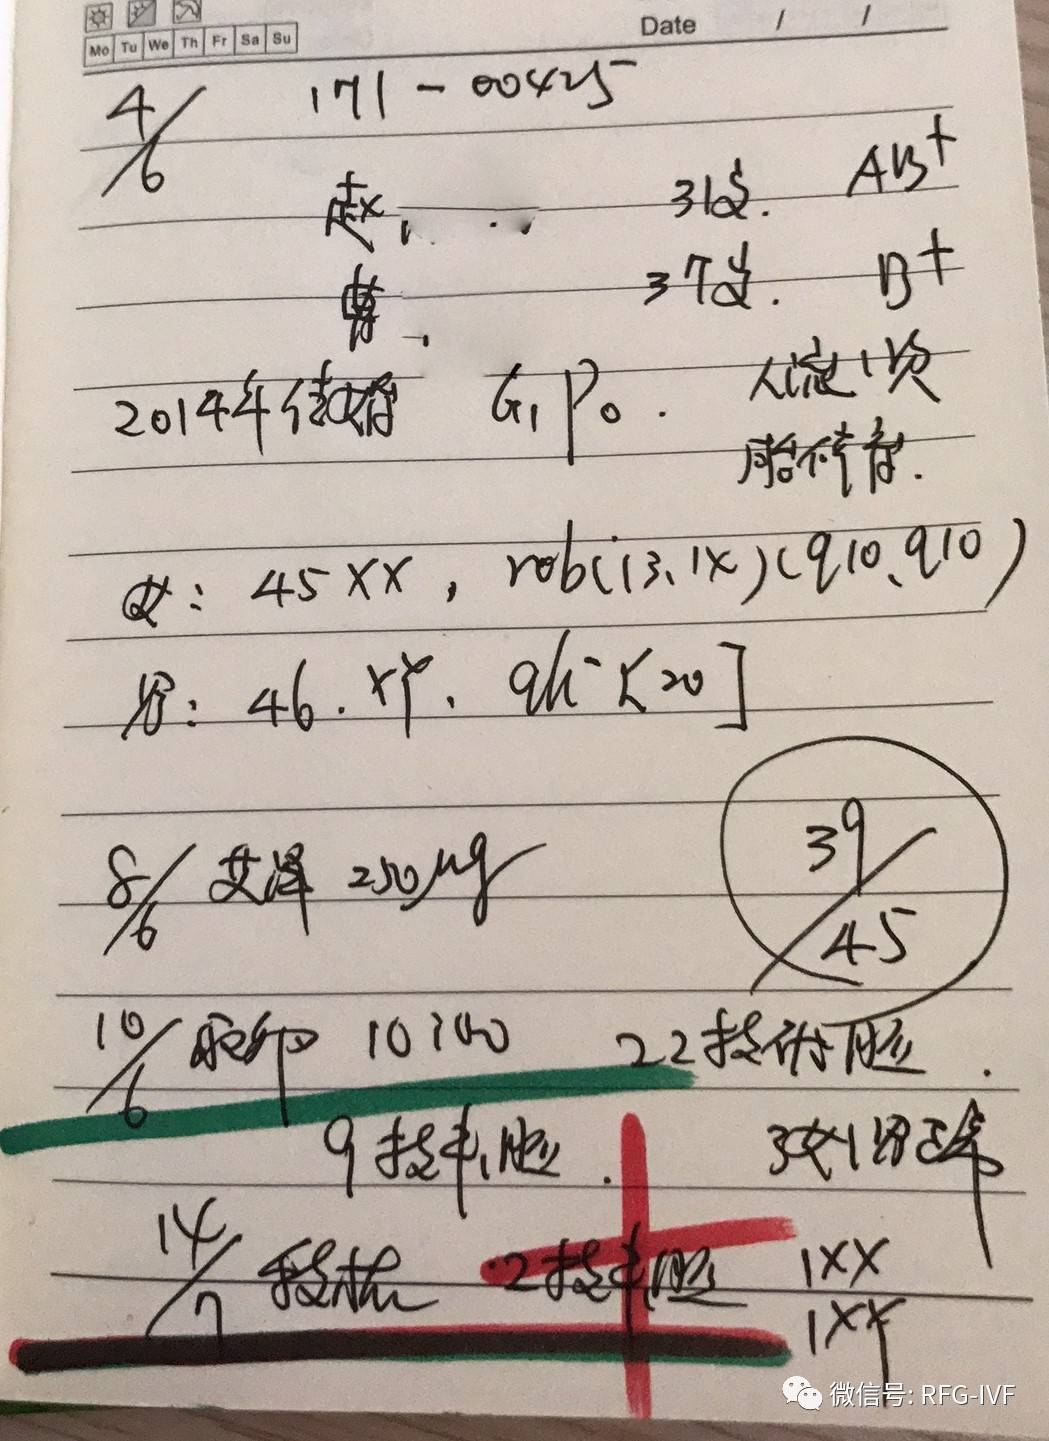 Date / /
Mo Tu We Th Fr Sa Su
4/6 171-00425
赵 31岁. AB+
曹 37岁. B+
2014年结婚 G1P0. 人流1次
胎停育.
女: 45XX, rob(13,1X)(q10,q10)
男: 46.XY. qh-[20]
8/6 艾泽 250μg 39/45
10/6 取卵 10:00 22枚 胚.
9枚囊胚. 3女1男正常
14/7 移植 2枚囊胚 1XX
1XY
微信号: RFG-IVF